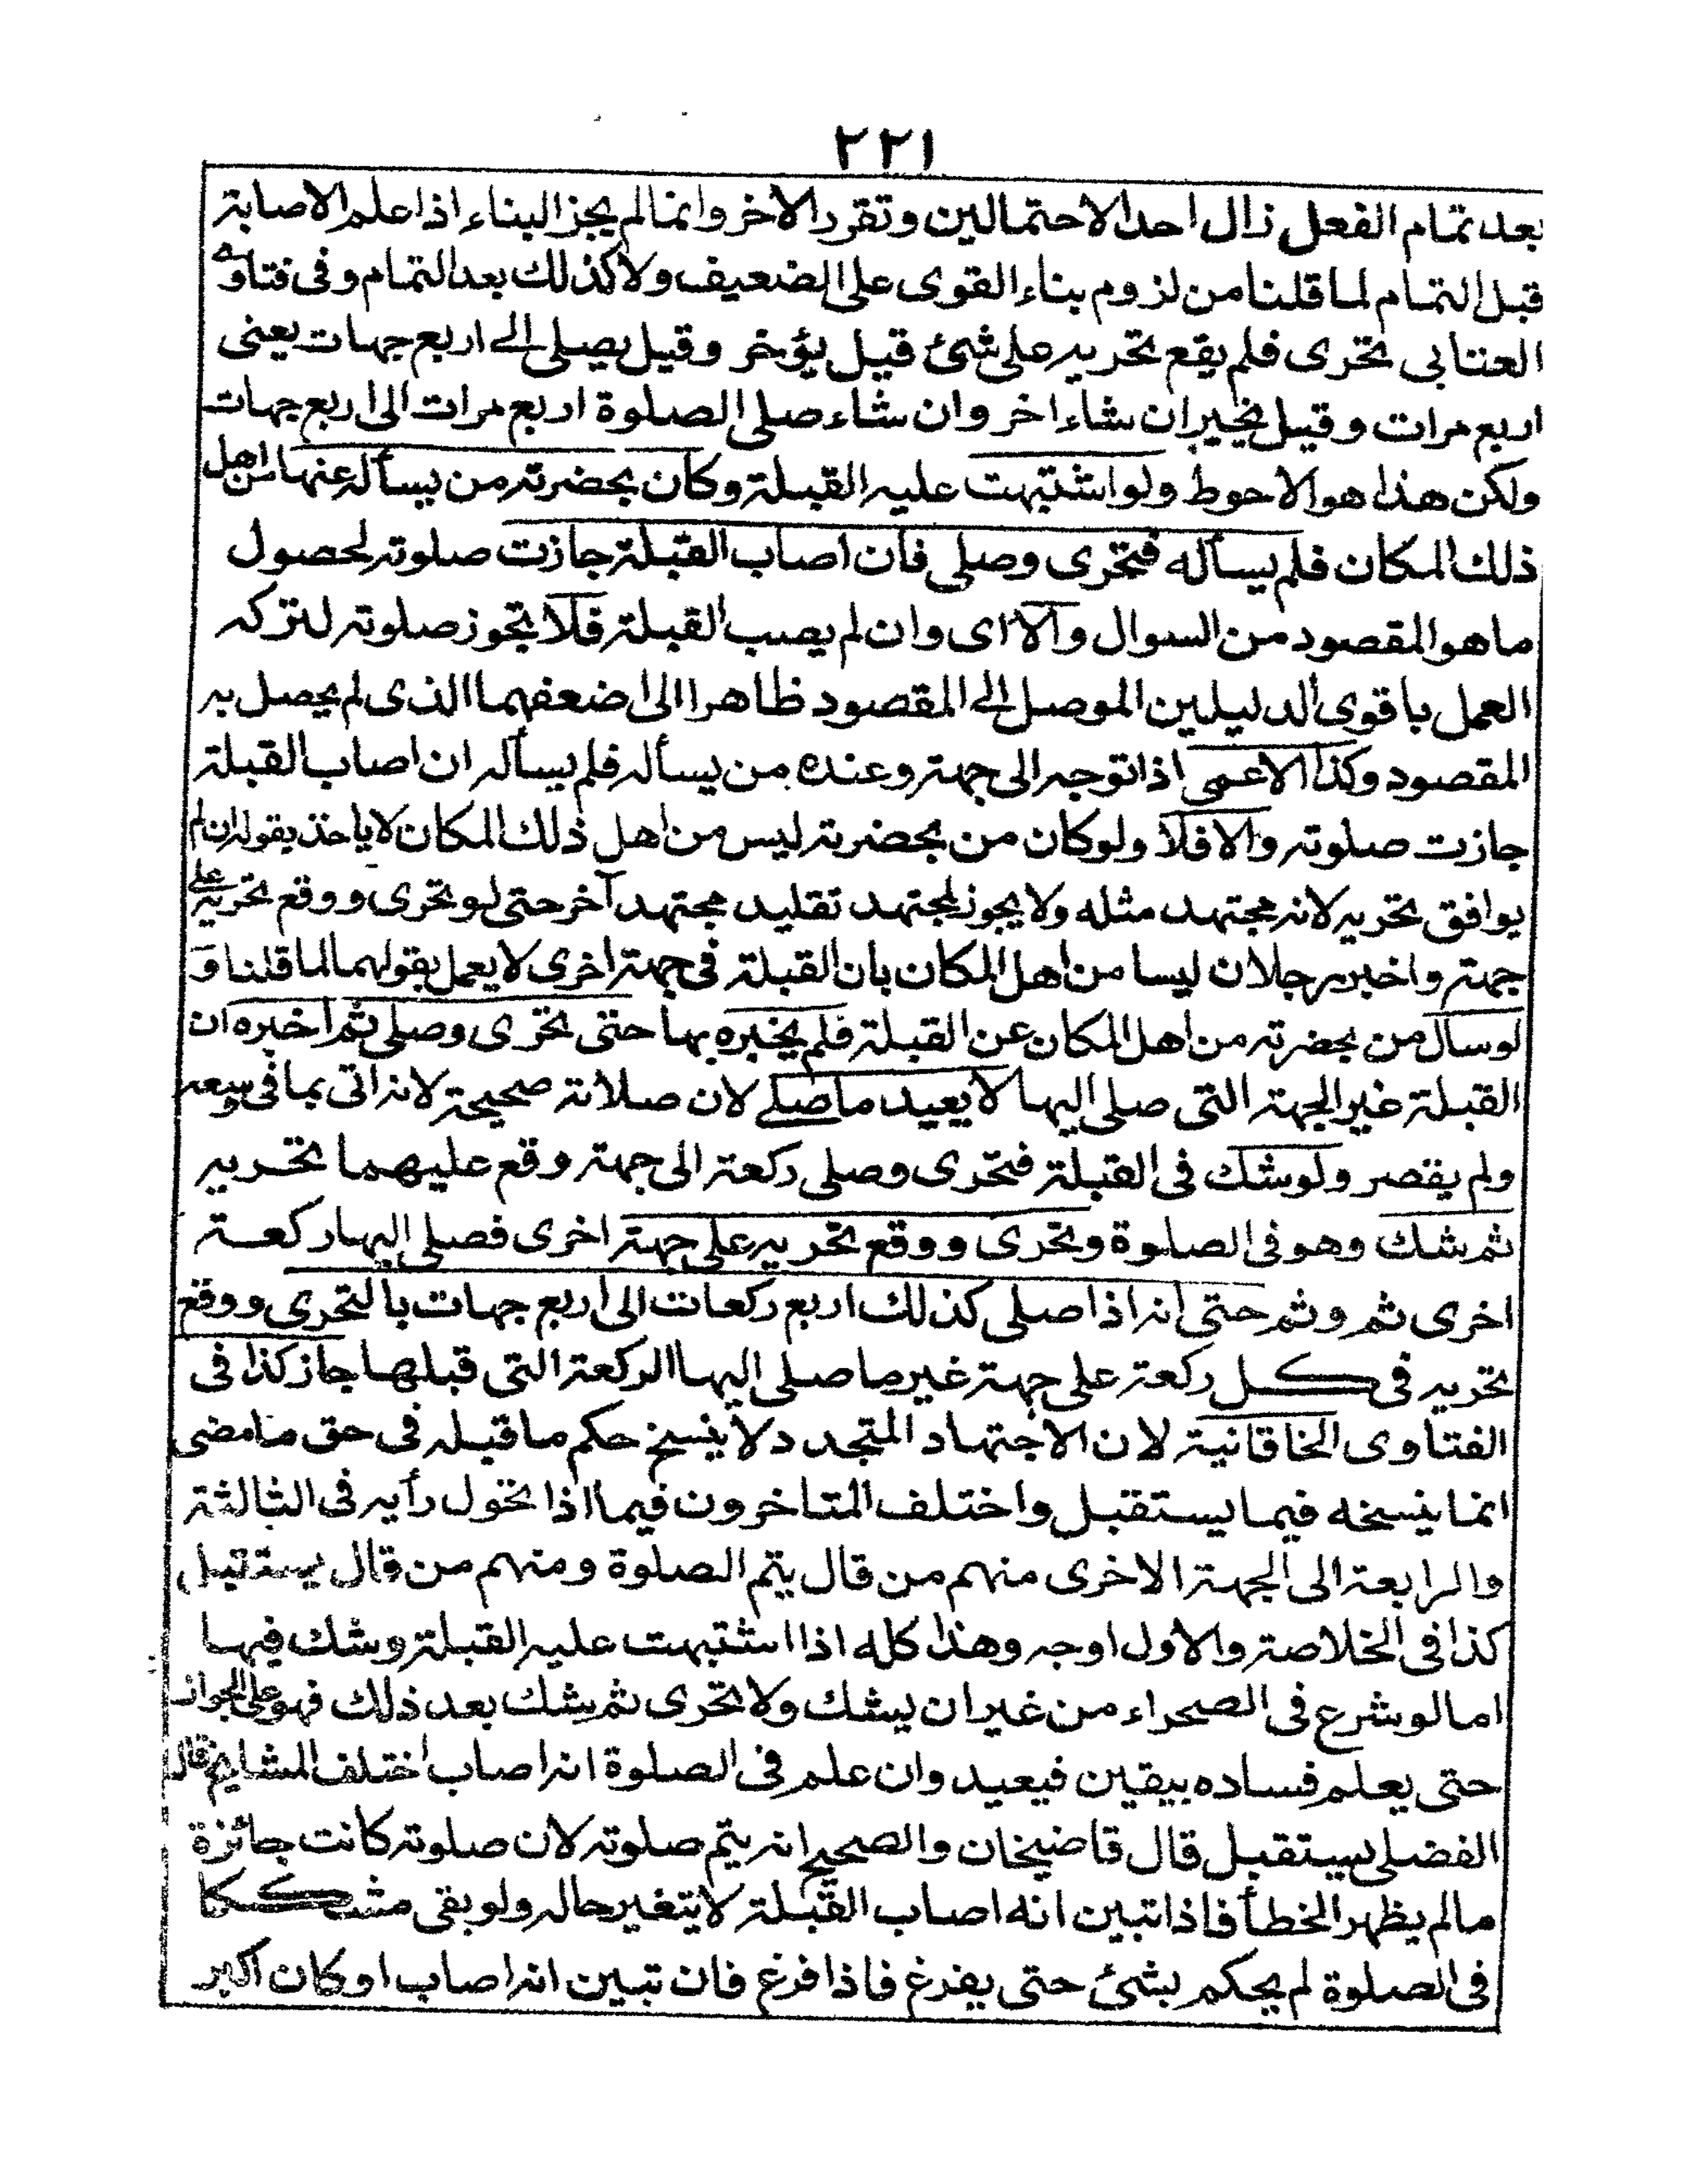 ٢٢١
بعد تمام الفعل زال احد الاحتمالين وتقرر الاخر وانما لم يجز البناء اذا علم الاصابة
قبل التمام لما قلنا من لزوم بناء القوى على الضعيف ولا كذلك بعد التمام وفى فتاوى
العتابى تحرى فلم يقع تحريه على شئ قيل يؤخر وقيل يصلى الى اربع جهات يعنى
اربع مرات وقيل يخير ان شاء اخر وان شاء صلى الصلوة اربع مرات الى اربع جهات
ولكن هذا هو الاحوط ولو اشتبهت عليه القبلة وكان بحضرته من يسأله عنها من اهل
ذلك المكان فلم يسأله فتحرى وصلى فان اصاب القبلة جازت صلوته لحصول
ما هو المقصود من السوال والا اى وان لم يصب القبلة فلا تجوز صلوته لتركه
العمل باقوى الدليلين الموصل الى المقصود ظاهرا الى اضعفهما الذى لم يحصل به
المقصود وكذا الاعمى اذا توجه الى جهة وعنده من يسأله فلم يسأله ان اصاب القبلة
جازت صلوته والا فلا ولو كان من بحضرته ليس من اهل ذلك المكان لا ياخذ بقوله ان لم
يوافق تحريه لانه مجتهد مثله ولا يجوز لمجتهد تقليد مجتهد آخر حتى لو تحرى ووقع تحريه على
جهة واخبره رجلان ليسا من اهل المكان بان القبلة فى جهة اخرى لا يعمل بقولهما لما قلنا و
لو سأل من بحضرته من اهل المكان عن القبلة فلم يخبره بها حتى تحرى وصلى ثم اخبره ان
القبلة غير الجهة التى صلى اليها لا يعيد ما صلى لان صلاته صحيحة لانه اتى بما فى وسعه
ولم يقصر ولو شك فى القبلة فتحرى وصلى ركعة الى جهة وقع عليهما تحريه
ثم شك وهو فى الصلوة وتحرى ووقع تحريه على جهة اخرى فصلى اليها ركعة
اخرى ثم وثم حتى انه اذا صلى كذلك اربع ركعات الى اربع جهات بالتحرى ووقع
تحريه فى كل ركعة على جهة غير ما صلى اليها الركعة التى قبلها جاز كذا فى
الفتاوى الخاقانية لان الاجتهاد المتجدد لا ينسخ حكم ما قبله فى حق ما مضى
انما ينسخه فيما يستقبل واختلف المتاخرون فيما اذا تحول رأيه فى الثالثة
والرابعة الى الجهة الاخرى منهم من قال يتم الصلوة ومنهم من قال يستقبل
كذا فى الخلاصة والاول اوجه وهذا كله اذا اشتبهت عليه القبلة وشك فيها
اما لو شرع فى الصحراء من غير ان يشك ولا تحرى ثم شك بعد ذلك فهو على الجواز
حتى يعلم فساده بيقين فيعيد وان علم فى الصلوة انه اصاب اختلف المشايخ قال
الفضلى يستقبل قال قاضيخان والصحيح انه يتم صلوته لان صلوته كانت جائزة
ما لم يظهر الخطأ فاذا تبين انه اصاب القبلة لا يتغير حاله ولو بقى مشككا
فى الصلوة لم يحكم بشئ حتى يفرغ فاذا فرغ فان تبين انه اصاب او كان اكبر